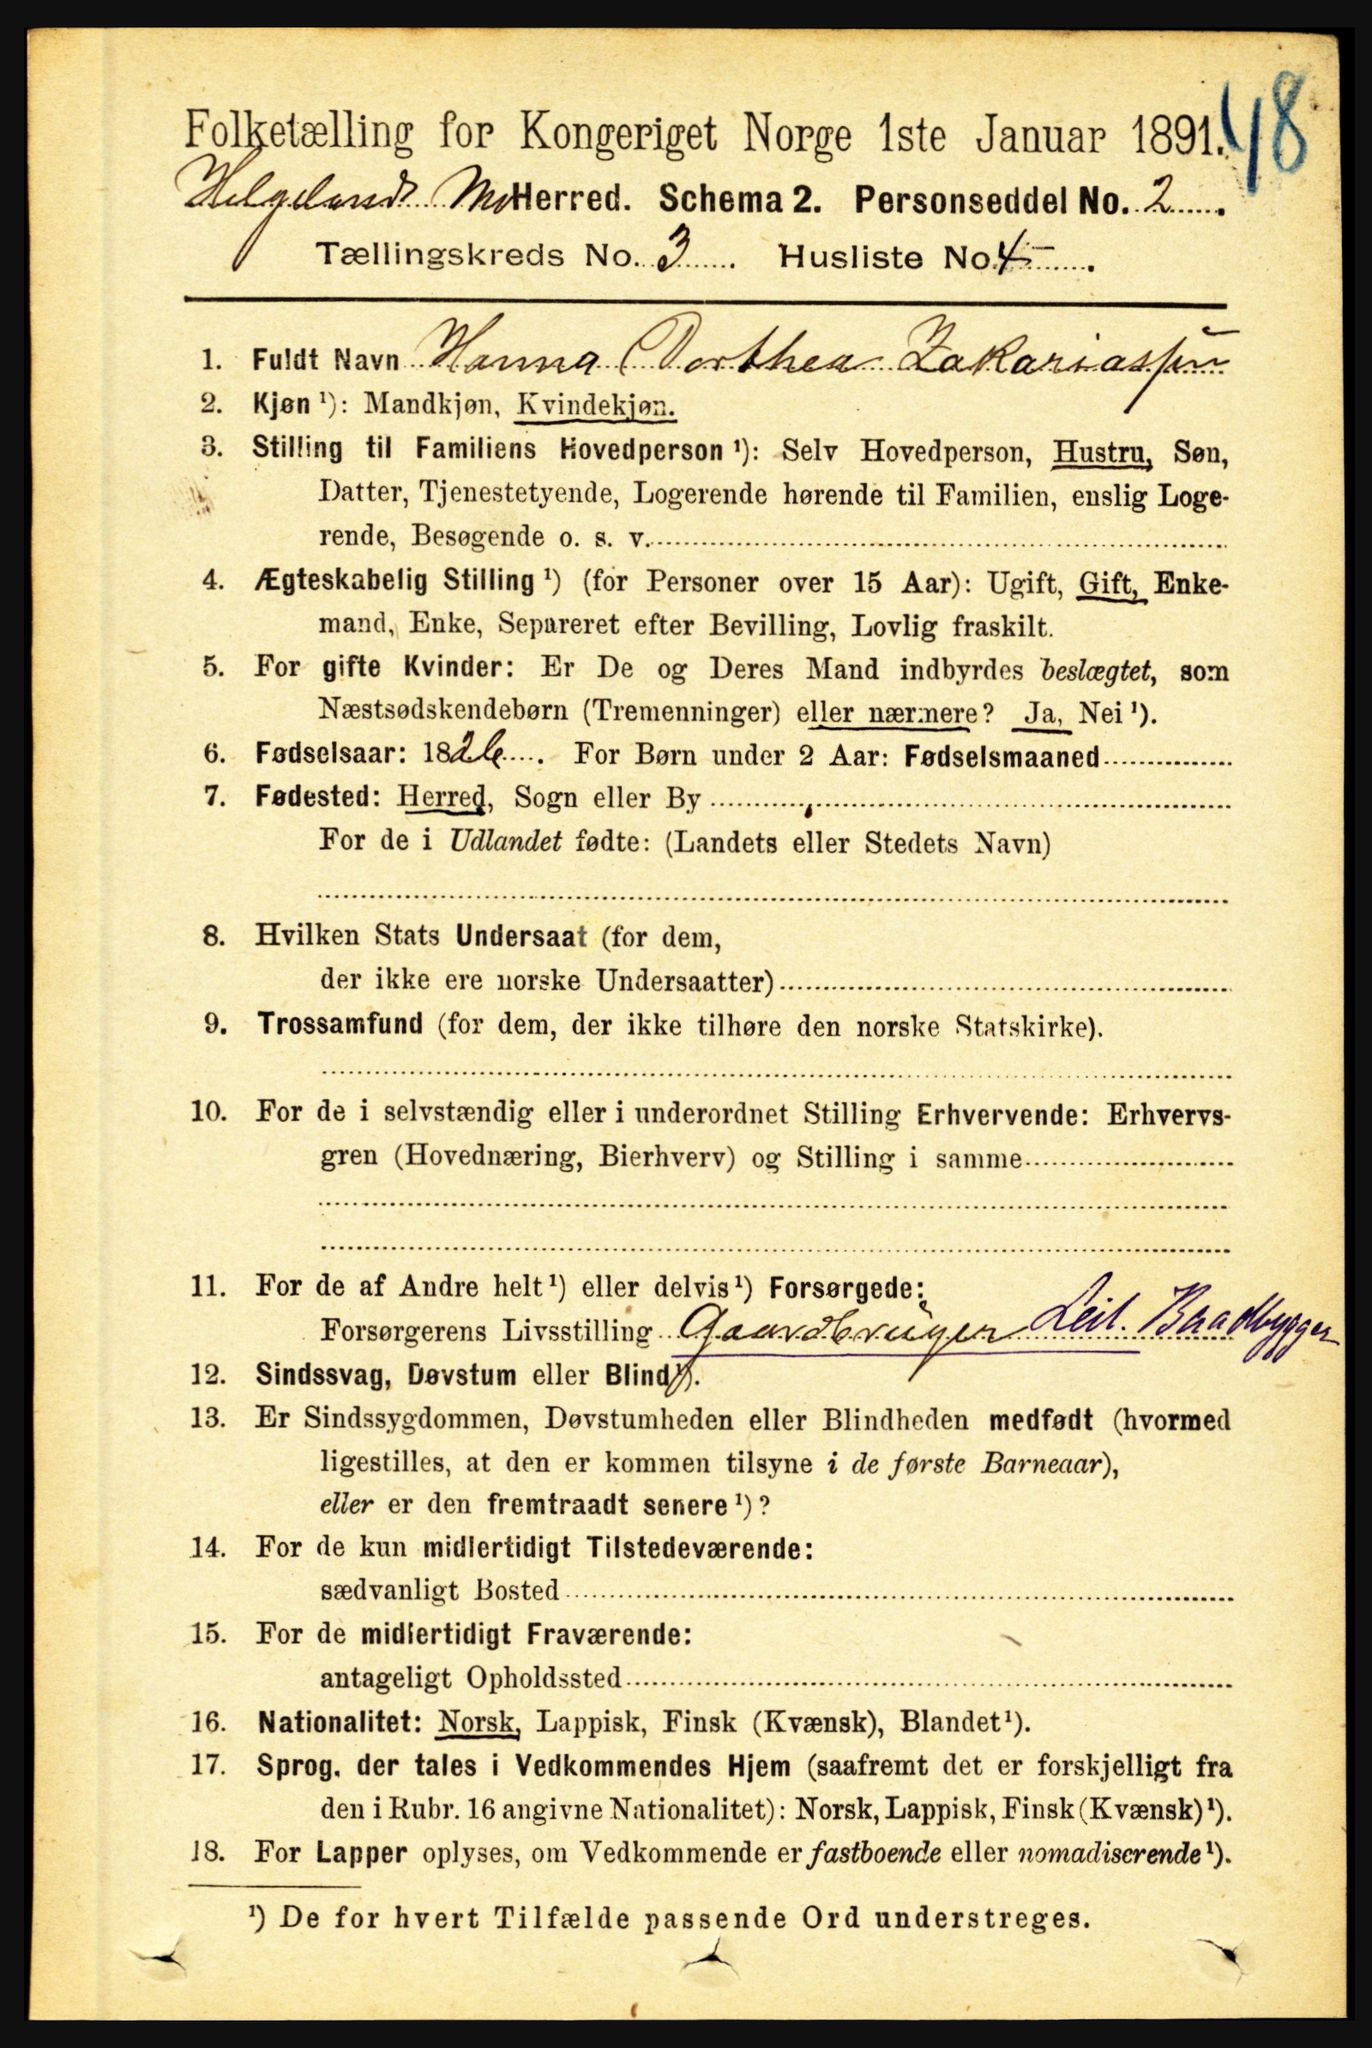 48
Folketælling for Kongeriget Norge 1ste Januar 1891.
Helgelands Mo Herred. Schema 2. Personseddel No. 2.
Tællingskreds No. 3. Husliste No. 4.
1. Fuldt Navn Hanna Dorthea Zakarias
2. Kjøn ¹): Mandkjøn, Kvindekjøn.
3. Stilling til Familiens Hovedperson ¹): Selv Hovedperson, Hustru, Søn,
Datter, Tjenestetyende, Logerende hørende til Familien, enslig Loge-
rende, Besøgende o. s. v.
4. Ægteskabelig Stilling ¹) (for Personer over 15 Aar): Ugift, Gift, Enke-
mand, Enke, Separeret efter Bevilling, Lovlig fraskilt.
5. For gifte Kvinder: Er De og Deres Mand indbyrdes beslægtet, som
Næstsødskendebørn (Tremenninger) eller nærmere? Ja, Nei ¹).
6. Fødselsaar: 1826. For Børn under 2 Aar: Fødselsmaaned
7. Fødested: Herred, Sogn eller By
For de i Udlandet fødte: (Landets eller Stedets Navn)
8. Hvilken Stats Undersaat (for dem,
der ikke ere norske Undersaatter)
9. Trossamfund (for dem, der ikke tilhøre den norske Statskirke).
10. For de i selvstændig eller i underordnet Stilling Erhvervende: Erhvervs-
gren (Hovednæring, Bierhverv) og Stilling i samme
11. For de af Andre helt ¹) eller delvis ¹) Forsørgede:
Forsørgerens Livsstilling Gaardbruger Leil. Baadbygger
12. Sindssvag, Døvstum eller Blind ¹).
13. Er Sindssygdommen, Døvstumheden eller Blindheden medfødt (hvormed
ligestilles, at den er kommen tilsyne i de første Barneaar),
eller er den fremtraadt senere ¹)?
14. For de kun midlertidigt Tilstedeværende:
sædvanligt Bosted
15. For de midlertidigt Fraværende:
antageligt Opholdssted
16. Nationalitet: Norsk, Lappisk, Finsk (Kvænsk), Blandet ¹).
17. Sprog, der tales i Vedkommendes Hjem (saafremt det er forskjelligt fra
den i Rubr. 16 angivne Nationalitet): Norsk, Lappisk, Finsk (Kvænsk) ¹).
18. For Lapper oplyses, om Vedkommende er fastboende eller nomadiserende ¹).
¹) De for hvert Tilfælde passende Ord understreges.